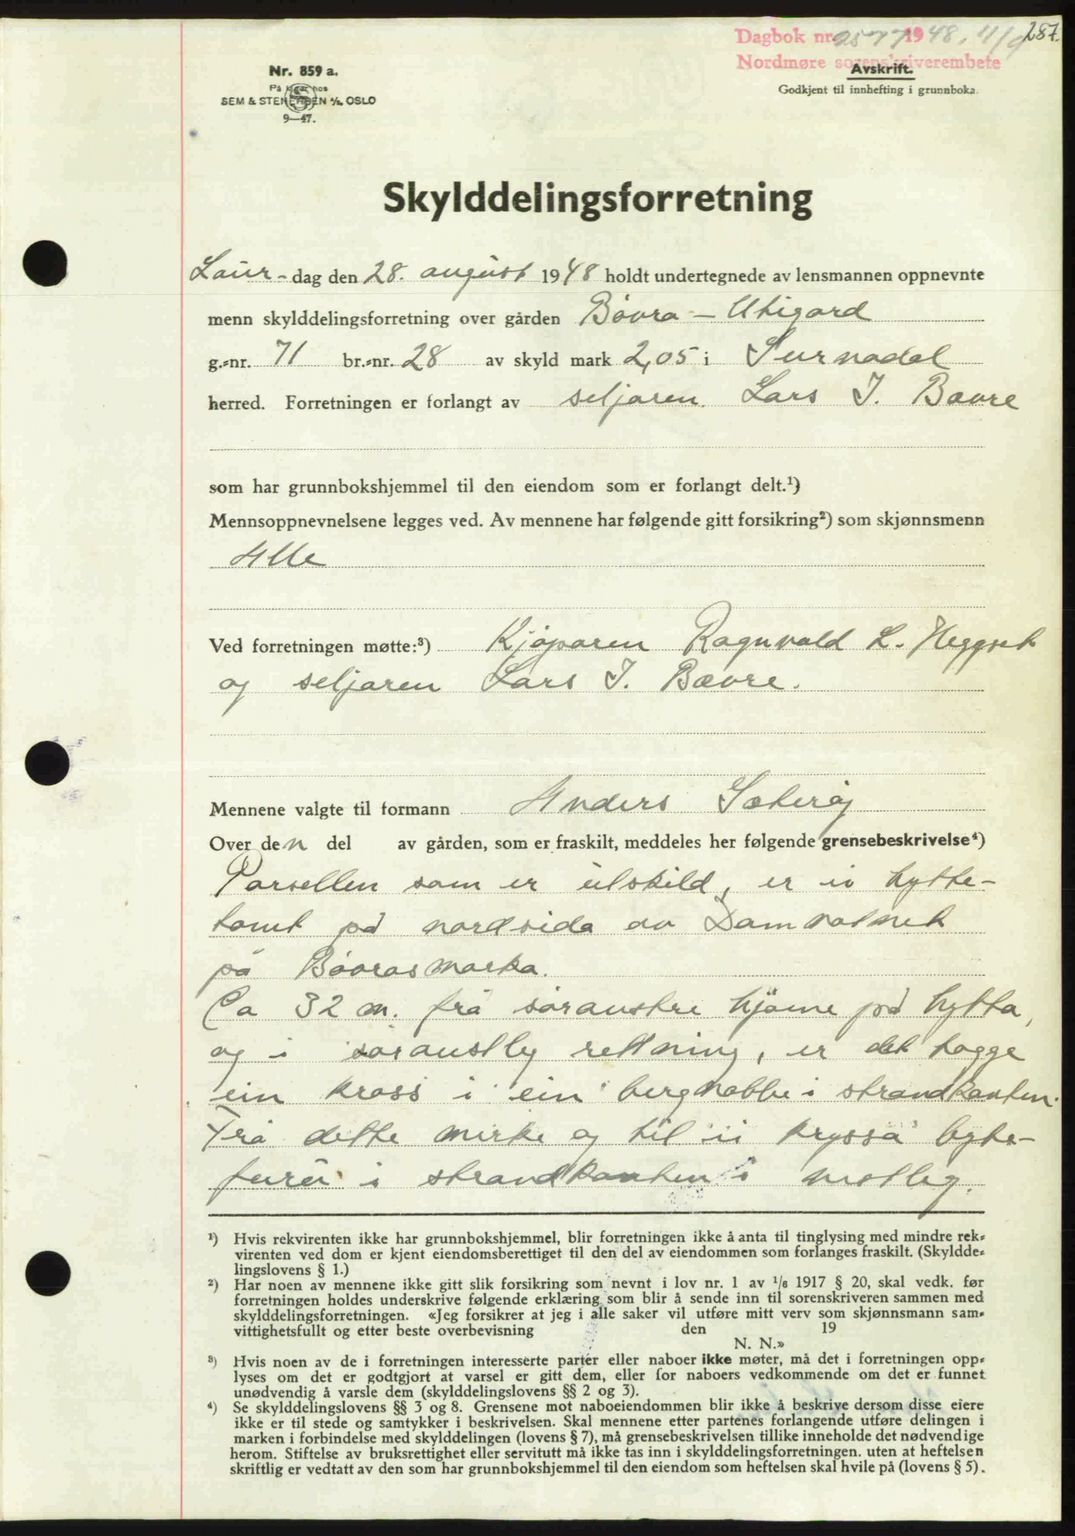 Dagbok nr. 2577 1948, 11/9 287.
Nordmøre sorenskriverembete
Avskrift.
Godkjent til innhefting i grunnboka.
Nr. 859 a.
På lager hos
SEM & STENERSEN A/S. OSLO
9—47.
Skylddelingsforretning
Laur-dag den 28. august 1948 holdt undertegnede av lensmannen oppnevnte
menn skylddelingsforretning over gården Bøvra - Utigard
g.-nr. 71 br.-nr. 28 av skyld mark 2,05 i Surnadal
herred. Forretningen er forlangt av seljaren Lars I. Bævre
som har grunnbokshjemmel til den eiendom som er forlangt delt.¹)
Mennsoppnevnelsene legges ved. Av mennene har følgende gitt forsikring²) som skjønnsmenn
Alle
Ved forretningen møtte:³) Kjøparen Ragnvald L. Heggset
og seljaren Lars I. Bævre.
Mennene valgte til formann Anders Sæterøy
Over den del av gården, som er fraskilt, meddeles her følgende grensebeskrivelse⁴)
Parsellen som er utskild, er ei hytte-
tomt på nordsida av Damvatnet
på Bøvrasmarka.
Ca 32 m. frå søraustre hjørne på hytta,
og i søraustleg rettning, er det hogge
ein kross i ein bergnabbe i strandkanten.
Frå dette merke og til ei kryssa byte-
furu i strandkanten i nordleg
¹) Hvis rekvirenten ikke har grunnbokshjemmel, blir forretningen ikke å anta til tinglysing med mindre rek-
virenten ved dom er kjent eiendomsberettiget til den del av eiendommen som forlanges fraskilt. (Skyldde-
lingslovens § 1.)
²) Har noen av mennene ikke gitt slik forsikring som nevnt i lov nr. 1 av 1/6 1917 § 20, skal vedk. før
forretningen holdes underskrive følgende erklæring som blir å sende inn til sorenskriveren sammen med
skylddelingsforretningen. «Jeg forsikrer at jeg i alle saker vil utføre mitt verv som skjønnsmann sam-
vittighetsfullt og etter beste overbevisning den 19
N. N.»
³) Hvis noen av de i forretningen interesserte parter eller naboer ikke møter, må det i forretningen opp-
lyses om det er godtgjort at varsel er gitt dem, eller for naboers vedkommende om det er funnet
unødvendig å varsle dem (skylddelingslovens §§ 2 og 3).
⁴) Se skylddelingslovens §§ 3 og 8. Grensene mot naboeiendommen blir ikke å beskrive dersom disse eiere
ikke er til stede og samtykker i beskrivelsen. Skal mennene etter partenes forlangende utføre delingen i
marken i forbindelse med skylddelingen (lovens § 7), må grensebeskrivelsen tillike inneholde det nødvendige
herom. Stiftelse av bruksrettighet eller servitutt må ikke tas inn i skylddelingsforretningen. uten at heftelsen
skriftlig er vedtatt av den som har grunnbokshjemmel til den eiendom som heftelsen skal hvile på (lovens § 5).